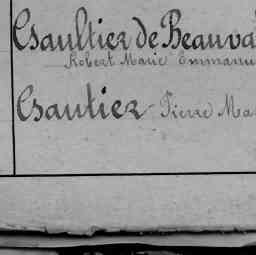 Gsaultier de Beauva
Robert Marie Emmanu
Gsautier Pierre Ma